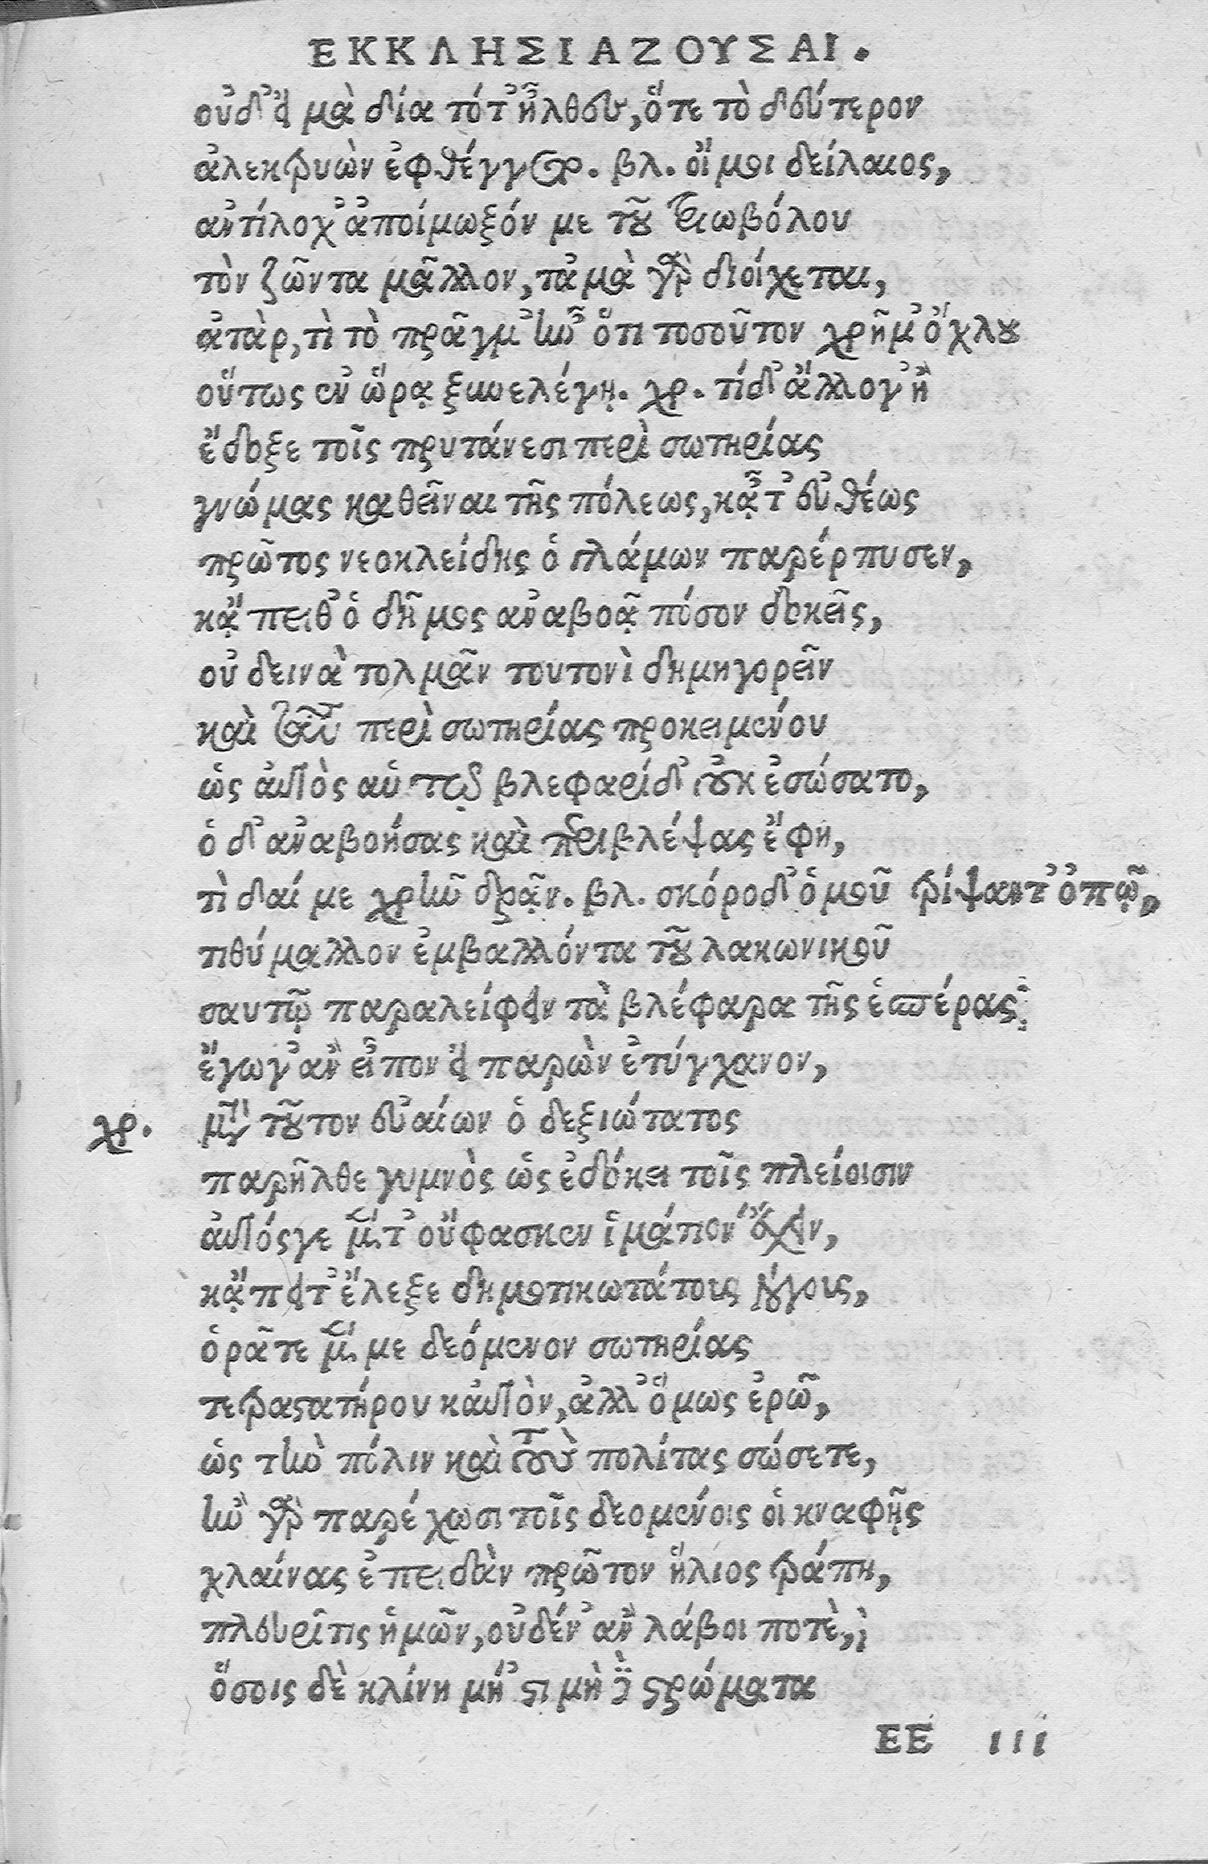 ΕΚΚΛΗΣΙΑΖΟΥΣΑΙ.
οὐδ' εἰ μὰ δία τότ' ἦλθευ, ὅτε τὸ δεύτερον
ἀλεκτρυὼν ἐφθέγγετο. βλ. οἴμοι δείλαιος,
ἀντίλοχ' ἀποίμωξόν με τοῦ τριωβόλου
τὸν ζῶντα μᾶλλον, τἀμὰ γὰρ διοίχεται,
ἀτὰρ, τὶ τὸ πρᾶγμ' ἦν ὅτι τοσοῦτον χρῆμ' ὄχλου
οὕτως ἐν ὥρᾳ ξυνελέγη. χρ. τί δ' ἄλλο γ' ἢ
ἔδοξε τοῖς πρυτάνεσι περὶ σωτηρίας
γνώμας καθεῖναι τῆς πόλεως, κᾆτ' εὐθέως
πρῶτος νεοκλείδης ὁ γλάμων παρέρπυσεν,
κᾄπειθ' ὁ δῆμος ἀναβοᾷ πόσον δοκεῖς,
οὐ δεινὰ τολμᾶν τουτονὶ δημηγορεῖν
καὶ ταῦτα περὶ σωτηρίας προκειμένου
ὡς αὐτὸς αὑτῷ βλεφαρίδ' οὐκ ἐσώσατο,
ὁ δ' ἀναβοήσας καὶ περιβλέψας ἔφη,
τὶ δαί με χρῆν δρᾷν. βλ. σκόροδ' ὁμοῦ τρίψαντ' ὀπῷ,
τιθύμαλλον ἐμβαλλόντα τοῦ λακωνικοῦ
σαυτῷ παραλείφειν τὰ βλέφαρα τῆς ἑσπέρας
ἔγωγ' ἂν εἶπον εἰ παρὼν ἐτύγχανον,
χρ. μετὰ τοῦτον εὐαίων ὁ δεξιώτατος
παρῆλθε γυμνὸς ὡς ἐδόκει τοῖς πλείοισιν
αὐτός γε μέντ' οὔφασκεν ἱμάτιον ἔχειν,
κᾄπειτ' ἔλεξε δημοτικωτάτους λόγους,
ὁρᾶτε μέν με δεόμενον σωτηρίας
τετραστατήρου καὐτὸν, ἀλλ' ὅμως ἐρῶ,
ὡς τὴν πόλιν καὶ τοὺς πολίτας σώσετε,
ἢν γὰρ παρέχωσι τοῖς δεομένοις οἱ κναφῆς
χλαίνας ἐπειδὰν πρῶτον ἥλιος τράπη,
πλευρῖτις ἡμῶν, οὐδέν' ἂν λάβοι ποτὲ,
ὅσοις δὲ κλίνη μή 'στι μὴ δὲ στρώματα
ΕΕ ΙΙΙ